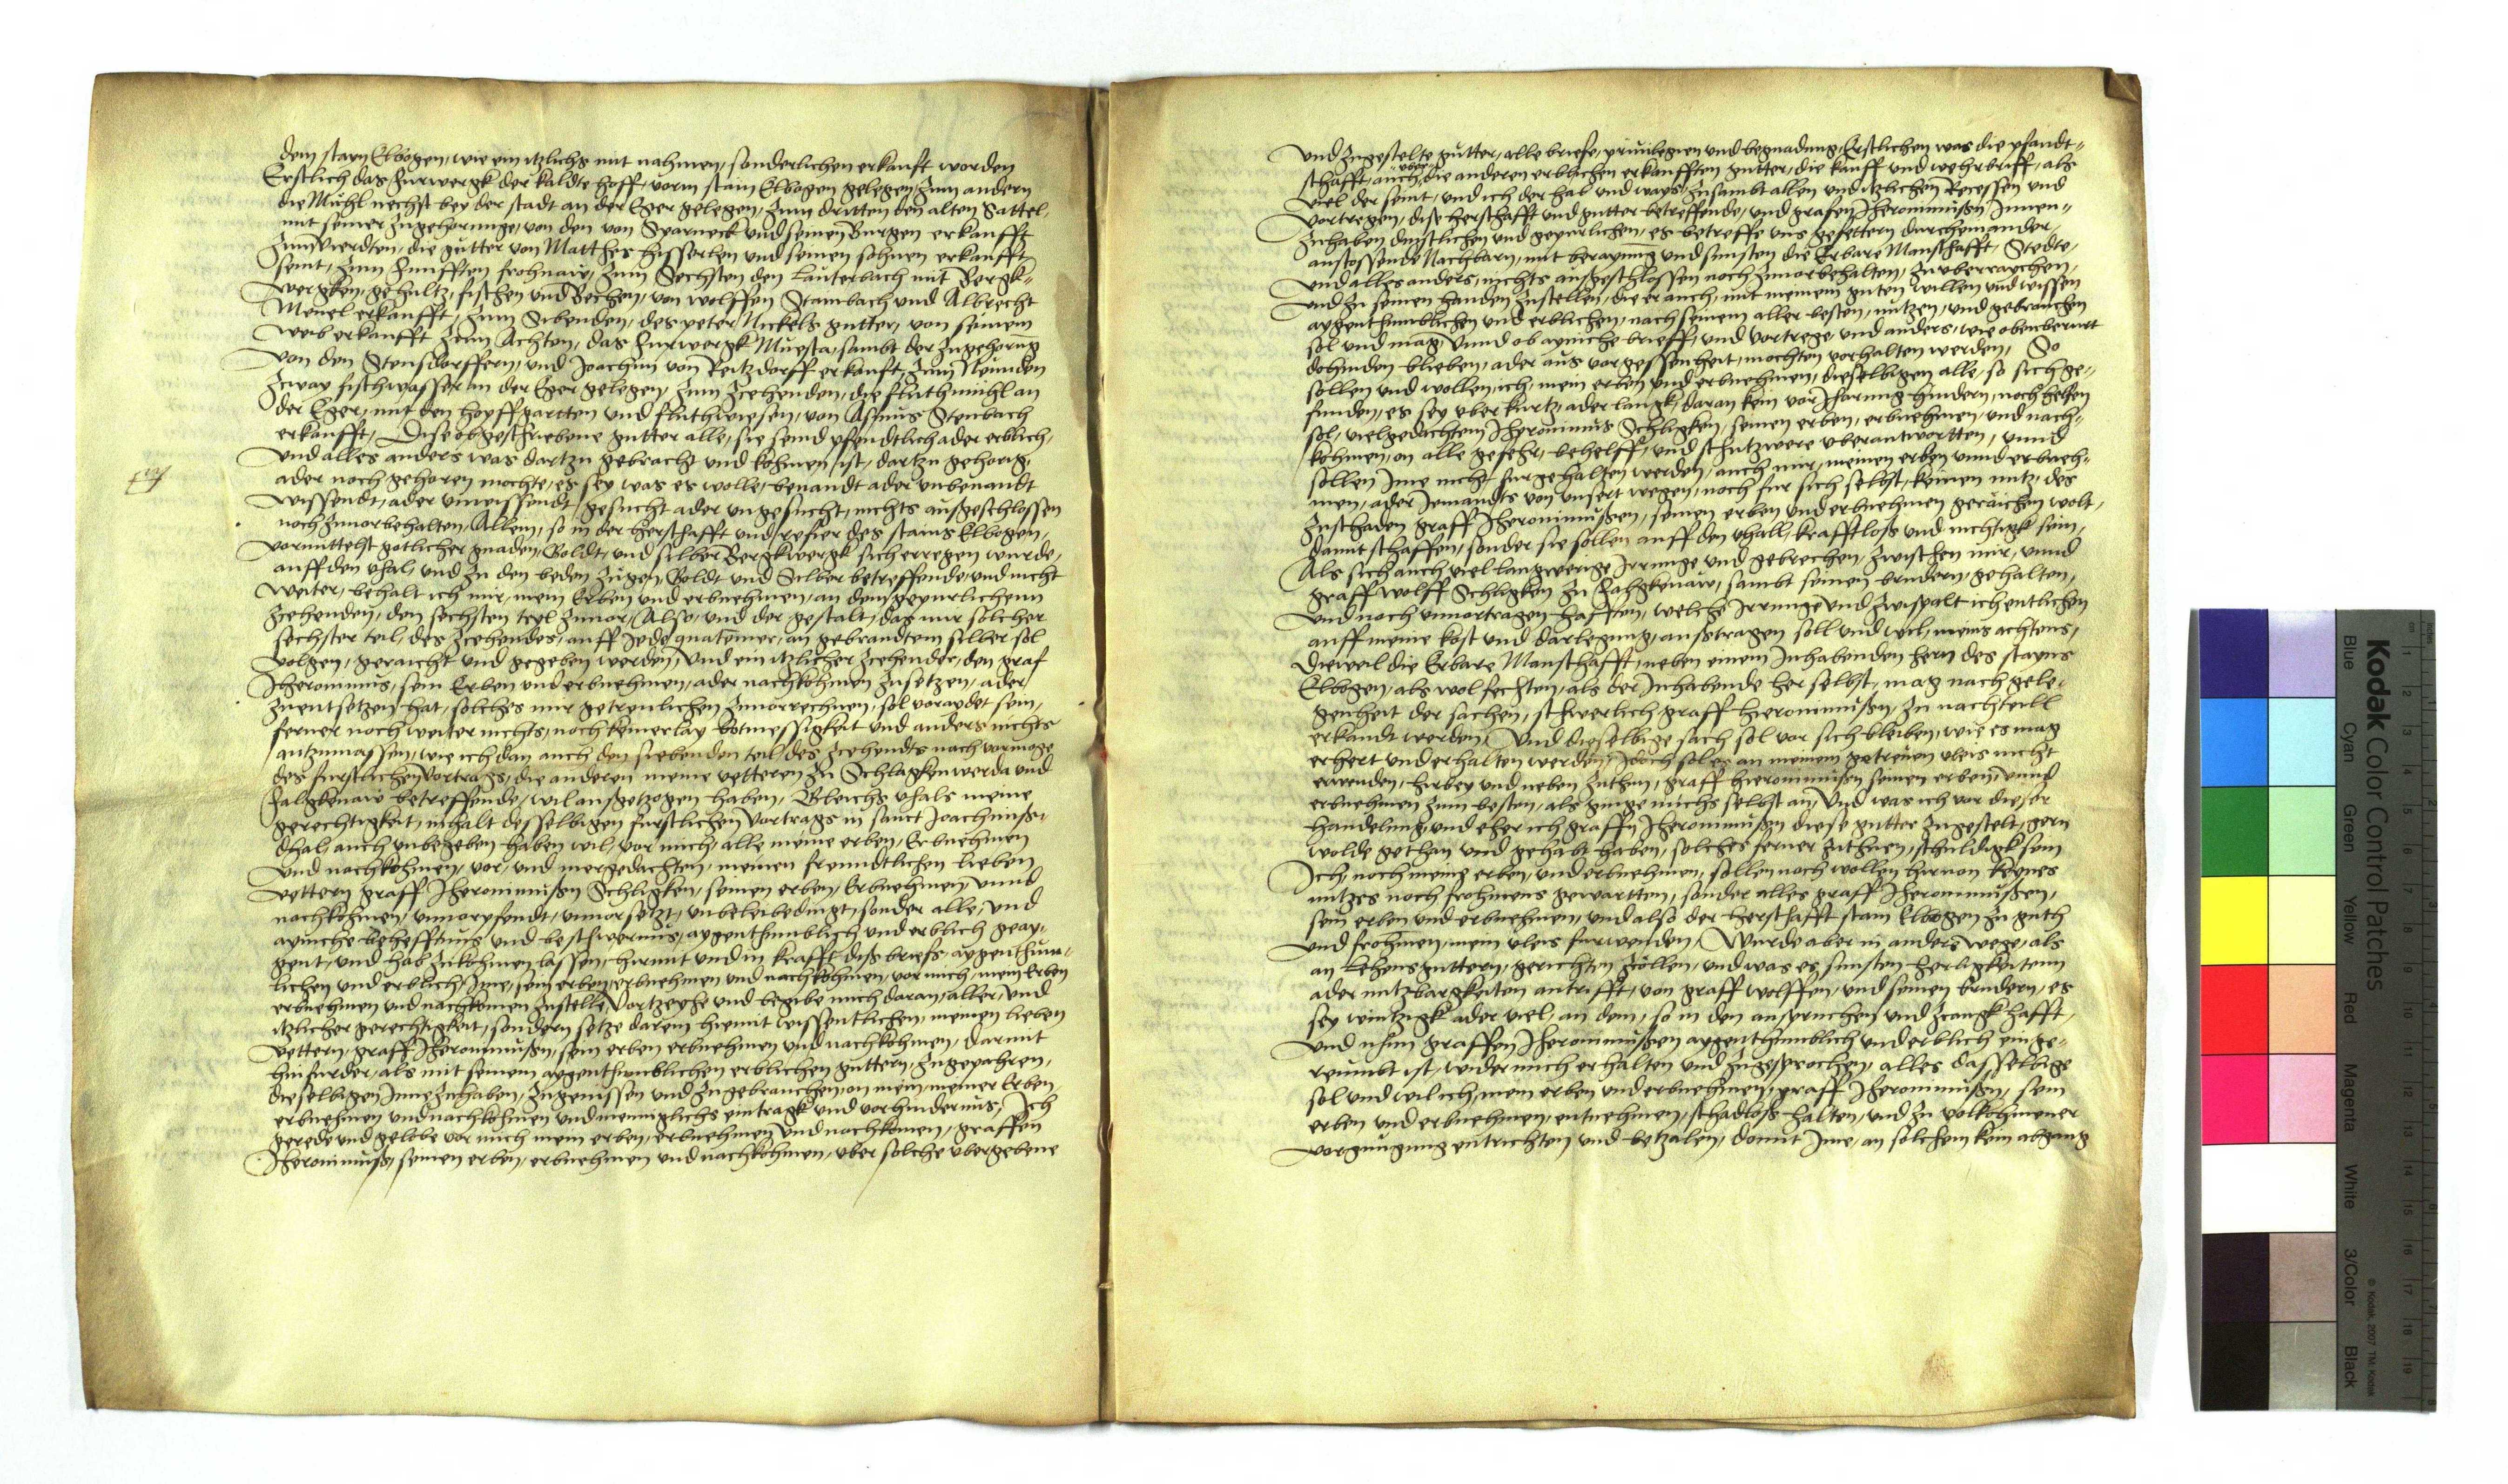 dem stayn Elbogen, wie ein itzlichs mit nahmen, sonderlichen erkauft worden
Erstlich das Furwergk der kaldte hoff, vorm stain Elbogen gelegen, Zum andern
die Muhl nechst bey der stadt an der Eger gelegen, Zum dritten den alten Sattel,
mit seiner zugehorunge, von den von Sparneck und seinen Burgen erkaufft
Zum vierdten, die gutter von Matthes hisserlen und seinen sohnen erkaufft
seint, Zum Funfften frohnaw, Zum Sechsten den Lauterbach mit Bergk-
wergken, gehultz, fischen und Bechen, von wolffen Stambach und Albrecht
Menel erkaufft, Zum Sibenden, des peter Nickels gutter, von seinem
weib erkaufft Zum Achten, das Furwergk Muesta, sambt der zugehorung
von den Stensdorffern, und Joachim von Reitzdorff erkauft, Zum Neunden
Zway fischwasser an der Eger gelegen, Zum Zcehenden, die fluthmuhl an
der Eger, mit den hopffgartten und fluthwiesen, von Asmus Stenbach
erkaufft, Dise obgeschriebene gutter alle, sie seind pfendtlich ader erblich,
und alles anders was dartzu gebracht und kohmen ist, dartzu gehorig,
ader noch gehoren mochte, es sey was es wolle, benandt ader unbenandt
wissendt, ader unwissendt, gesucht ader ungesucht, nichts außgeschlossen
noch zuuorbehalten, Allein, so in der herschafft und refier des stains Elbogen,
vormittelst gotlicher gnaden, Goldt, und silber Bergkwergk sich erregen wurde,
auff den vhal, und zu den beden zugen, Goldt und Silber betreffende, und nicht
weiter, behalt ich mir, mein Erben und erbnehmen, an dem gepurlichenn
Zcehenden, den sechsten teyl zuuor, Also, und der gestalt, das mir solcher
sechster teil, des Zcehendes, auff Jede quatemer, an gebrandtem silber sol
volgen, geraicht und gegeben werden, Und ein itzlicher Zcehender, den graf
Jheronimus, sein Erben und erbnehmen, ader nachkohmen zusetzen, ader
zuentsetzen hat, solches mir getreulichen zuuorrechnen, sol voraydet sein,
ferner noch weiter nichts, noch keinerlay botmessigkeit und anders nichts
antzumassen, wie ich dan auch den siebenden teil des Zcehendts nach vormoge
des furstlichen vortrags, die anderen meine vetteren zu Schlagkenwerda und
Falgkenaw betreffende, wil außgetzogen haben, Gleichs vhals meine
gerechtigkeit, inhalt desselbigen furstlichen vortrags in sanct Joachimß-
dhal, auch unbegeben haben wil, vor mich, alle meine erben, Erbnehmen
und nachkohmen, vor, und mergedachten, meinen freundtlichen lieben
vettern graff Jheronimußen Schligken, seinen erben, Erbnehmen, unnd
nachkohmen, unuorpfendt, unuorsetzt, unbeleibedingt, sonder alle, und
ayniche behefftnus und beschwernus, aygenthumblich und erblich geay-
gent, und hab zukohmen lassen, hirmit und in krafft diß briefs, aygenthum-
lichen und erblich, Jme, sein erben, erbnehmen und nachkohmen, vor mich, mein Erben
erbnehmen und nachkomen zustelle, Vortzeyhe und begibe mich daran, aller, und
itzlicher gerechtigkeit, sondern setze darein hiemit wissentlichen, meinen lieben
vettern, graff Jheronimußen, sein erben erbnehmen und nachkohmen, darmit
hinfurder, als mit seinem aygenthumblichen erblichen guttern, zugepahren,
dieselbigen Jnnezuhaben, zugenissen und zugebrauchen, on mein, meiner Erben
erbnehmen und nachkohmen und menniglichs eintragk und vorhindernus, Ich
gerede und gelobe vor mich mein erben, erbnehmen und nachkomen, graffen
Jheronimuß, seinen erben, erbnehmen und nachkohmen, uber solche ubergebene
und zugestelte gutter, alle briefe, priuilegien und begnadung, Erstlichen was die pfandt-
uber
schafft, auch, die anderen erblichen erkaufften gutter, die kauff und wehrbriff, als
viel der seint, und ich der hab und ways, zusambt allen und itzlichen Recessen und
vortregen, dise herschafft und gutter betreffende, und grafen Jheronimußen Jnnen-
zuhaben dinstlichen und gepurlichen, es betreffe uns gefettern durcheinander,
anstossende Nachbarn, mit beraynung und sunsten die Erbare Manschafft, Stedte,
und alles anders, nichts außgeschlossen noch zuuorbehalten, zuuberraychen,
und zu seinen handen zustellen, die er auch, mit meinem guten willen und wissen
aygenthumblichen und erblichen, nach seinem aller besten, nutzen, und gebrauchen
sol und mag, Vnnd ob ayniche brieff, und vortrege und anders, wie obenberurt
dohinden blieben, ader aus vorgessenheit, mochten vorhalten werden, So
sollen und wollen, ich, mein erben und erbnehmen, dieselbigen alle, so sich ge-
funden, es sey uber kurtz, ader langk, daran kein vorJharung hindern, noch helfen
sol, vielgedachtem Jheronimus Schligken, seinen erben, erbnehmen, und nach-
kohmen, on alle gefehr, behelff, und schutzwere uberantwortten, unnd
sollen Jme nicht furgehalten werden, auch mir, meinen erben unnd erbneh-
men, ader Jemandts von unsert wegen, noch fur sich selbst, keinen nutz, des
zuschaden graff Jheronimußen, seinen erben und erbnehmen geraichen wolt,
damit schaffen, sonder sie sollen auff den vhall, krafftloß und nichtigk sein,
Als sich auch viel langwerige Jrrunge und gebrechen, zwischen mir, unnd
graff wolff Schligken zu Falgkenaw, sambt seinen brudern, gehalten,
und noch unuortragen hafften, welche Jrrunge und zwispalt ich entlichen
auff meine kost und darlegung, außtragen soll und wil, meins achtens,
dieweil die Erbare Manschafft, neben einem Jnhabenden hern des stayns
Elbogen, als wol fechten, als der Jnhabende her selbst, mag nach gele-
genheit der sachen, schwerlich graff hieronimußen, zu nachteill
erkandt werden, Und dieselbige sach sol vor sich bleiben, wie es mag
erhert und erhalten werden, Doch sol es an meinem getreuen vleis nicht
erwenden, hirbey und neben zuthun, graff hieronimußen seinen erben, unnd
erbnehmen zum besten, als ginge michs selbst an, Und was ich vor dieser
handelung, und eher ich graffn Jheronimußen diese gutter zugestelt, gern
wolde gethan und gehabt haben, solches ferner zuthuen, schuldigk sein
Ich, noch meine erben, und erbnehmen, sollen noch wollen hiruon keynes
nutzes noch frohmens gewartten, sonder alles graff Jheronimußen,
sein erben und erbnehmen, und also der herschafft stain Elbogen zu guth
und frohmen, mein vleis furwenden, Wurde aber in anders wege, als
an Lehensguttern, gerichten Zcöllen, und was es sunsten herligkeitenn
ader nutzbargkeiten antrifft, von graff wolffen, und seinen brudern, es
sey wintzigk ader viel, an dem, so in den anspruchen und Zcangk hafft,
und nhun graffen Jheronimußen aygenthumblich und erblich einge-
reumbt ist, wider mich erhalten und zugesprochen, alles dasselbige
sol und wil ich, mein erben und erbnehmen, graff Jheronimußen, sein
erben und erbnehmen, entnehmen, schadloß halten, und zu volkohmener
vorgnugung entrichten und betzalen, domit Jme, an solchem kein abgang
Kodak Color Control Patches
© Kodak, 2007 TM: Kodak
Blue Cyan Green Yellow Red Magenta White 3/Color Black